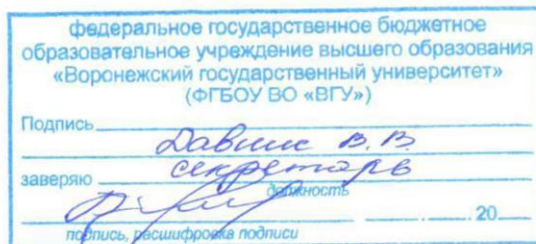 федеральное государственное бюджетное
образовательное учреждение высшего образования
«Воронежский государственный университет»
(ФГБОУ ВО «ВГУ»)
Подпись
Давнис В.В.
заверяю секретарь
должность
. . 20
подпись, расшифровка подписи